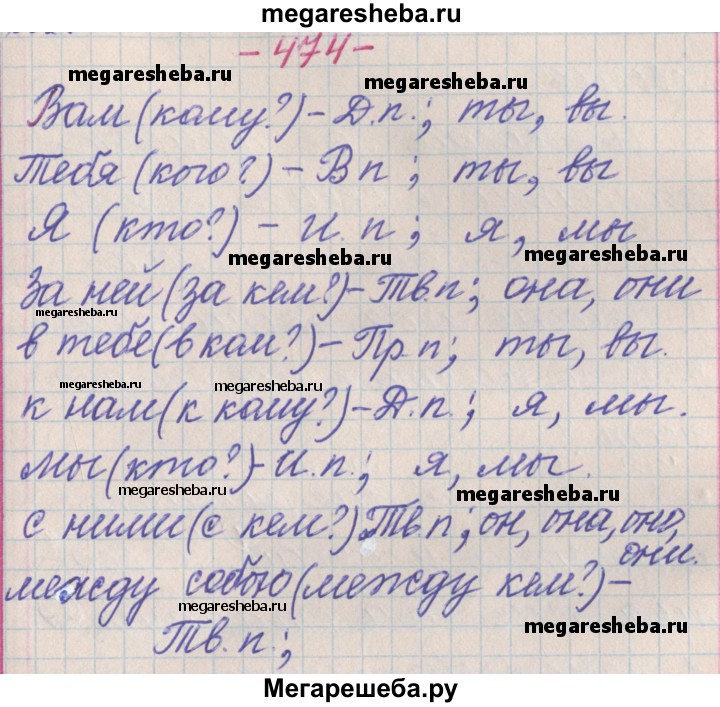 megaresheba.ru
- 474 -
megaresheba.ru megaresheba.ru
Вам (кому?) - Д.п.; ты, вы.
megaresheba.ru
Тебя (кого?) - В п; ты, вы
Я (кто?) - И.п; я, мы
megaresheba.ru megaresheba.ru
За ней (за кем?) - Тв.п; она, они
megaresheba.ru
в тебе (в ком?) - Пр.п; ты, вы.
megaresheba.ru megaresheba.ru
к нам (к кому?) - Д.п.; я, мы.
мы (кто?) - И.п.; я, мы.
megaresheba.ru megaresheba.ru
с ними (с кем?) Тв.п; он, она, оно,
они.
между собою (между кем?) -
megaresheba.ru megaresheba.ru
Тв.п.;
Мегарешеба.ру